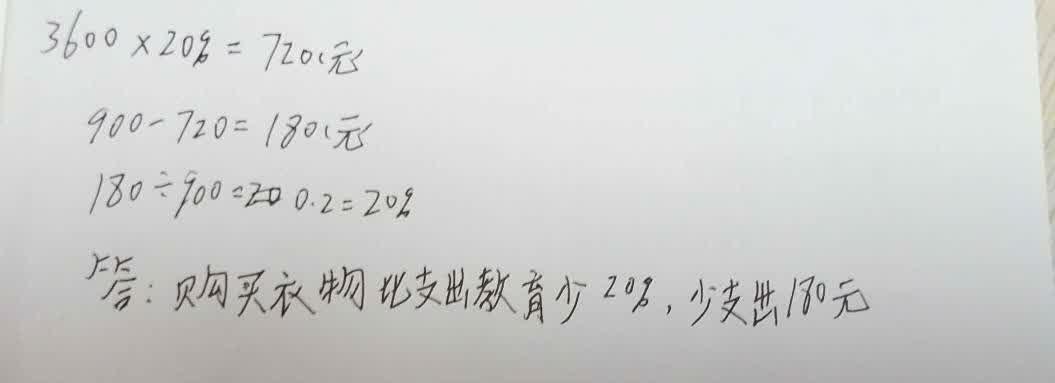 3600×20%=720(元)
900-720=180(元)
180÷900=0.2=20%
答:购买衣物比支出教育少20%,少支出180元